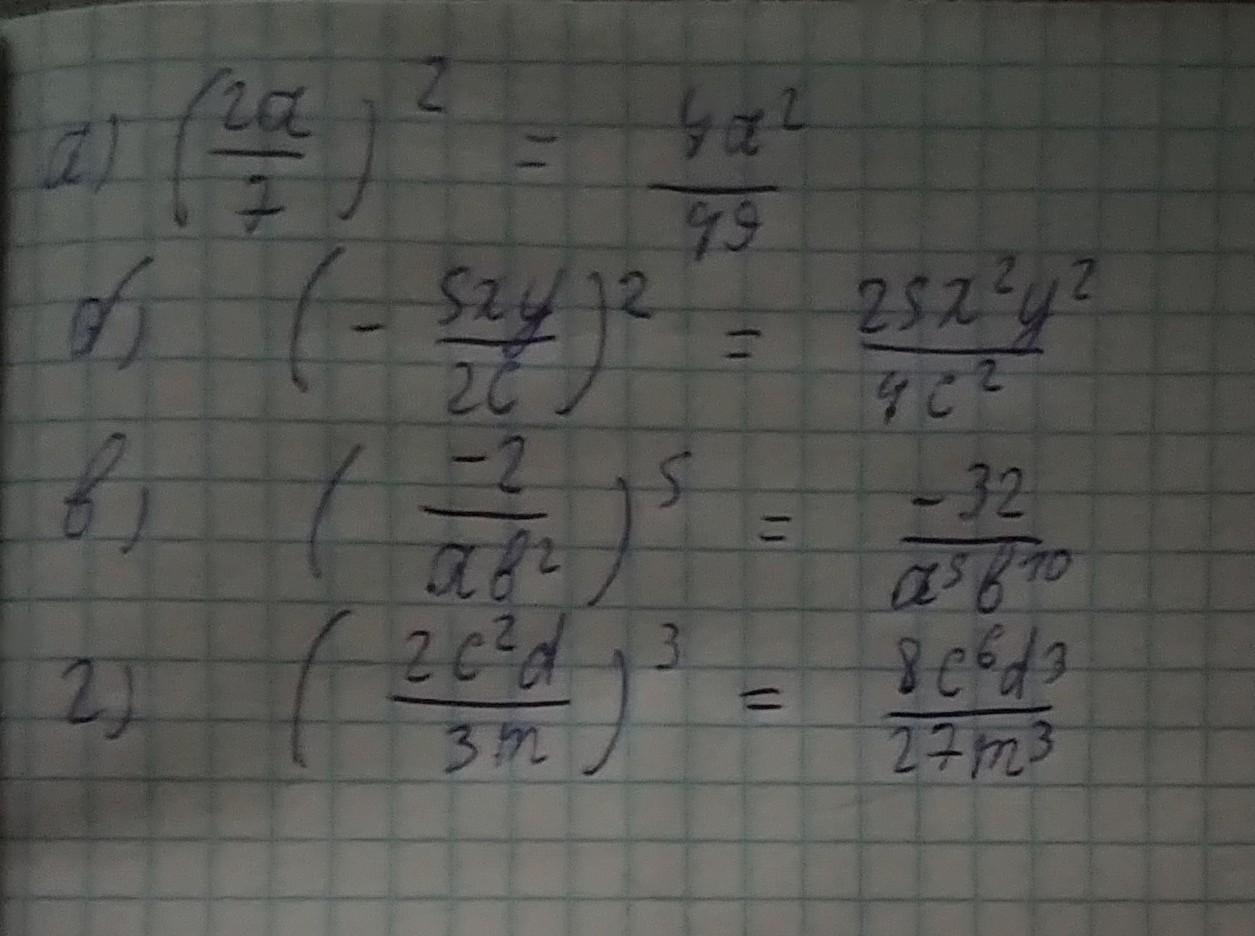 а) (2a/7)² = 4a²/49
б) (- 5xy/2c)² = 25x²y²/4c²
в) (-2/ab²)⁵ = -32/a⁵b¹⁰
г) (2c²d/3m)³ = 8c⁶d³/27m³